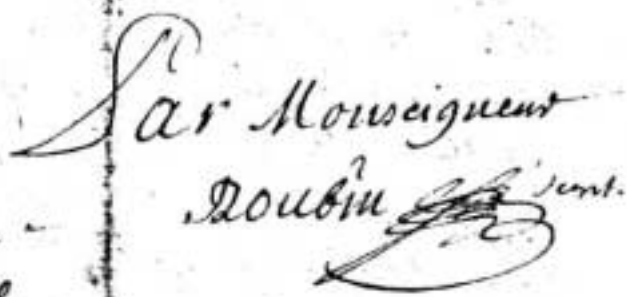 Par Monseigneur
Roubin